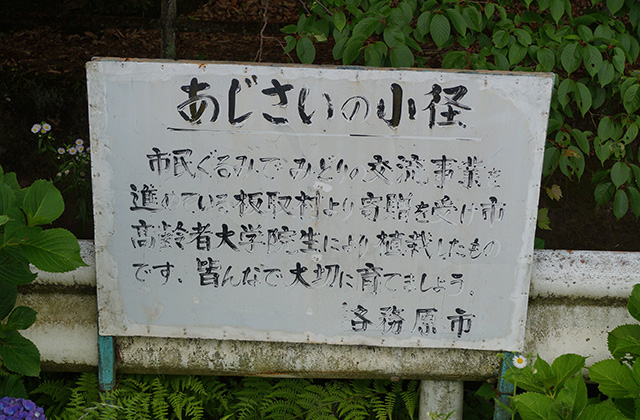 あじさいの小径
市民ぐるみでみどりの交流事業を
進めている板取村より寄贈を受け市
高齢者大学院生により植栽したもの
です、皆んなで大切に育てましょう。
各務原市